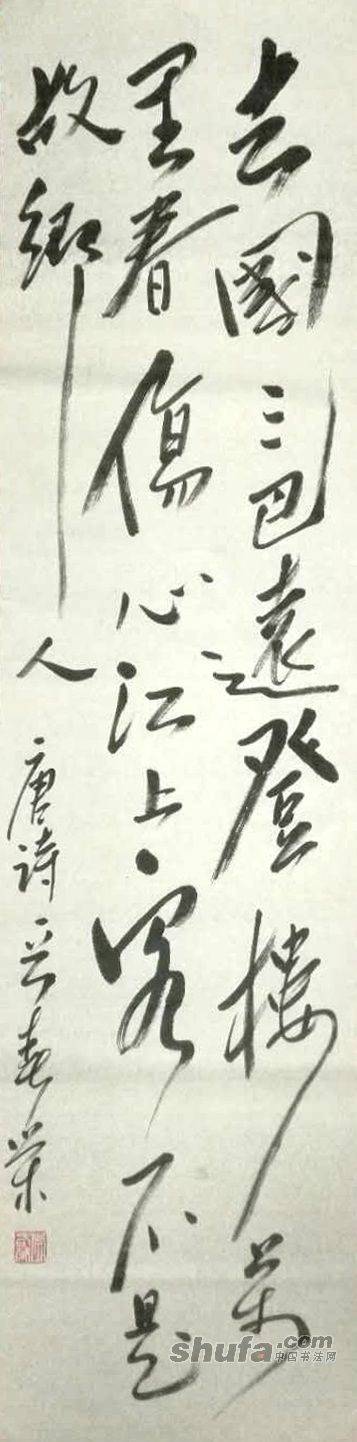 去國三巴遠登樓萬
里春傷心江上客不是
故鄉人 唐詩
shufa.com
中国书法网